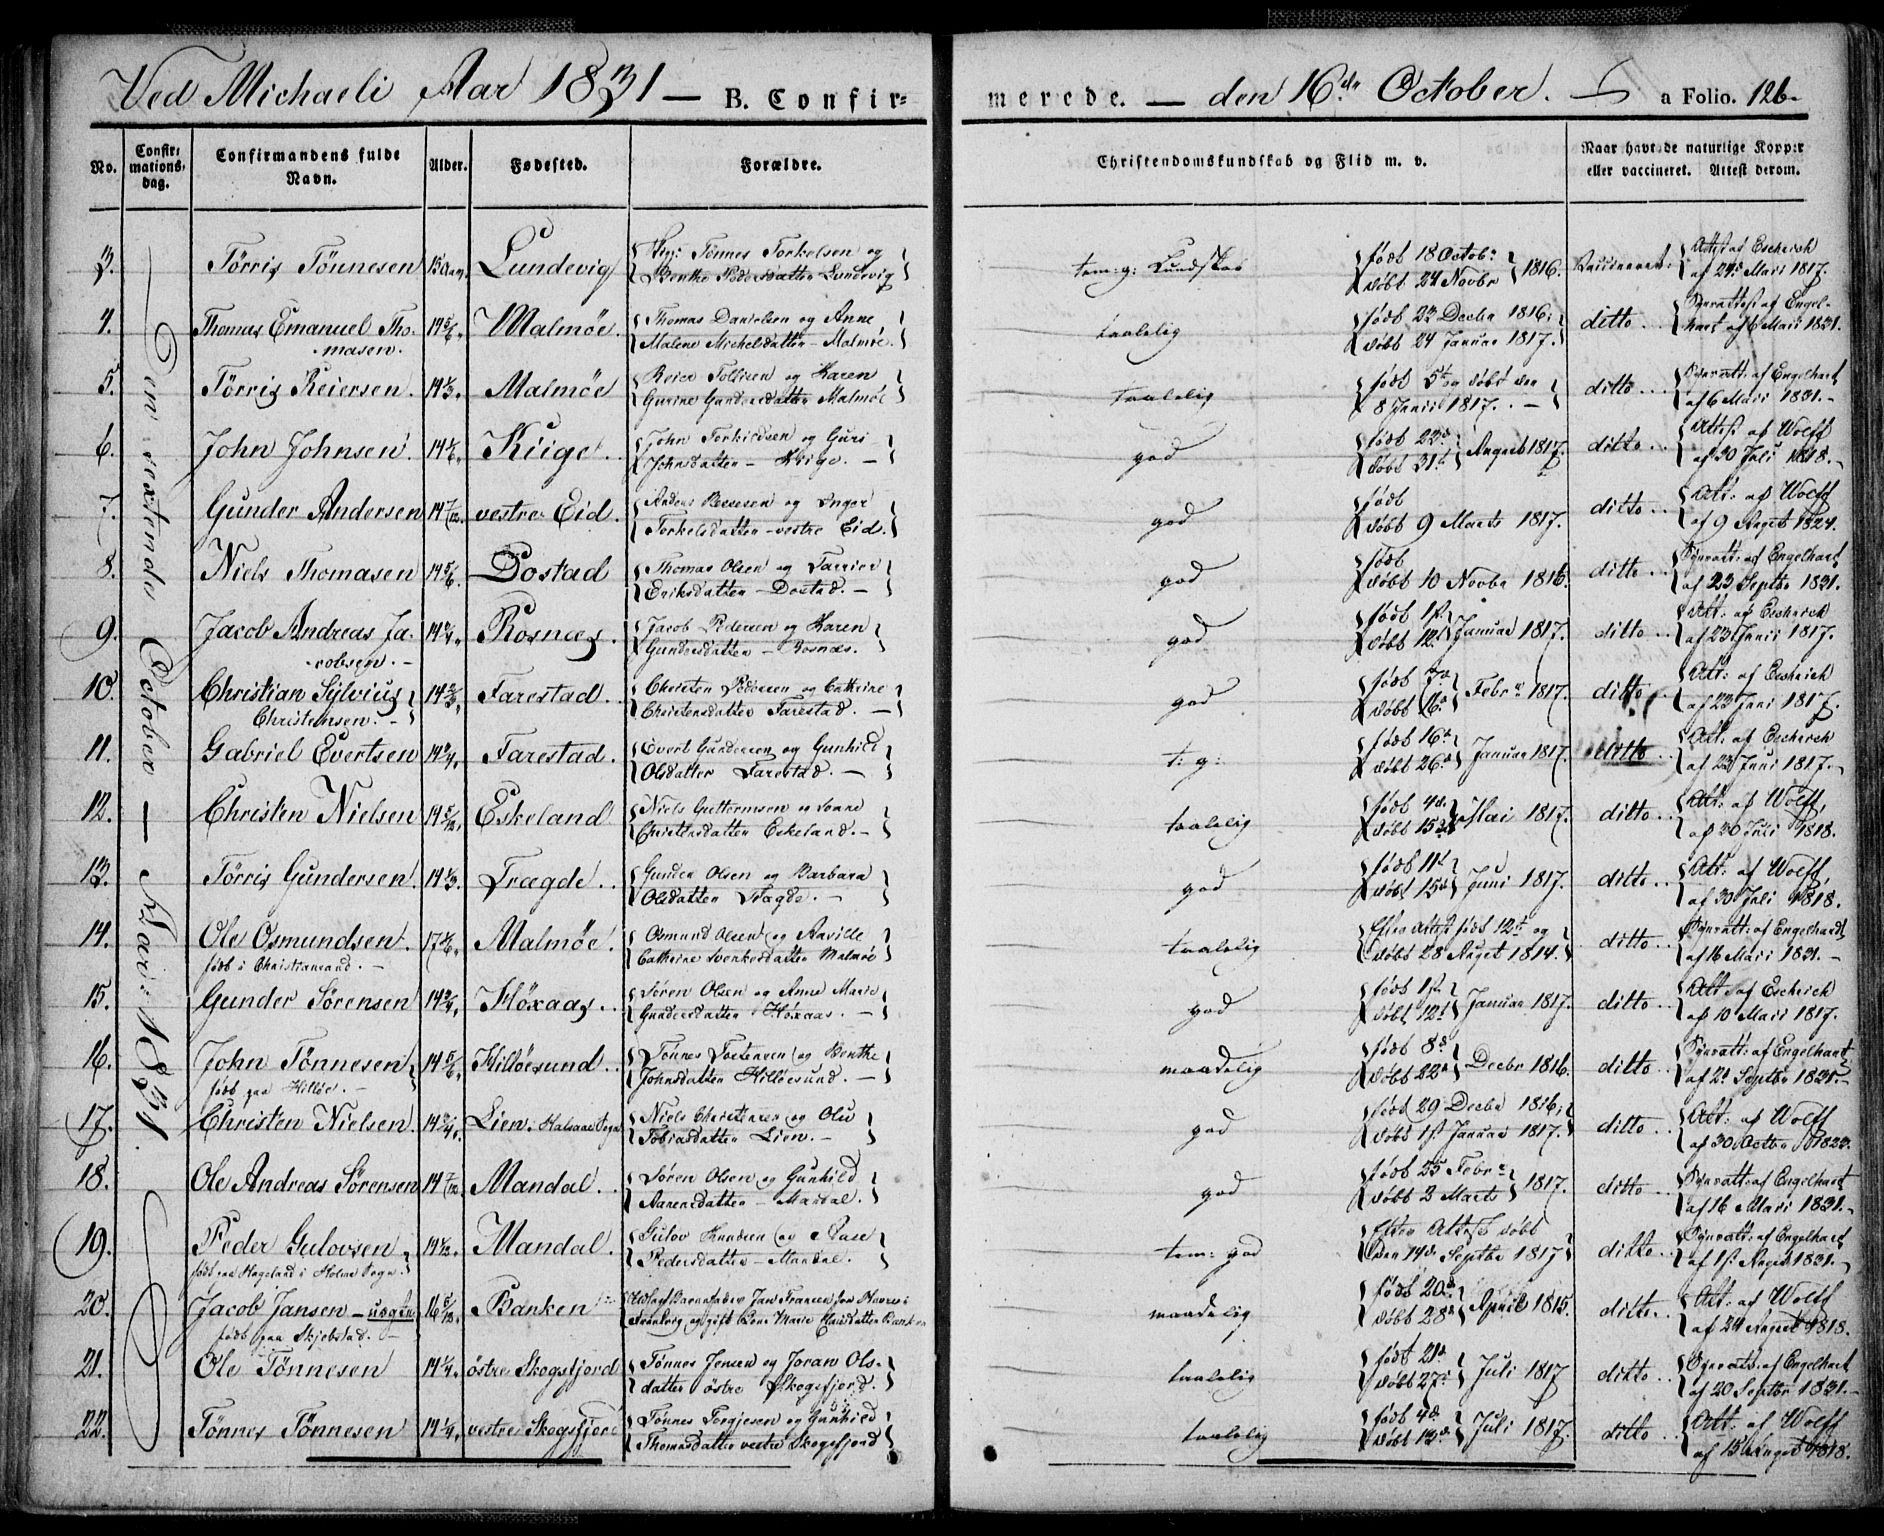 Ved Michaeli Aar 1831 — B. Confir=
merede. — den 16de October. a Folio. 126.
No.
Confir=
mations=
dag.
Confirmandens fulde
Navn.
Alder.
Fødested.
Forældre.
Christendomskundskab og Flid m. v.
Naar havt de naturlige Kopper
eller vaccineret. Attest derom.
Den sextende October — Aar: 1831.
3. Tørris Tønnesen 15 Aar. Lundevig Tønnes Torkelsen og
Benthe Pedersdatter Lundevig
tem: g: Kundskab født 18 Octob:
døbt 24 Novbr 1816. Vaccineret: Attest af Escherich
af 24de Mai 1817.
4. Thomas Emanuel Tho-
masen. 14 5/6. Malmøe. Thomas Danielsen og Anne
Malene Michelsdatter – Malmøe.
taalelig født 23 Decbr 1816,
døbt 24 Januar 1817. ditto Synsattest af Engel-
hart af 6 Mai 1831.
5. Tørris Reiersen. 14 1/3. Malmøe Reier Tollisen og Karen
Gurine Gundersdatter Malmøe
taalelig født 5t og døbt den
8 Junii 1817. — ditto Synsatt: af Engelhart
af 6 Mai 1831. –
6. John Johnsen. 14 1/6. Kiige John Torkildsen og Guri
Johnsdatter – Kiige. –
god født 23d
døbt 31t August 1817. ditto Attest af Wolff
af 30 Juli 1818. –
7. Gunder Andersen 14 7/12. vestre Eid. Anders Berresen og Inger
Torkelsdatter – vestre Eid.
god født
døbt 9 Marts 1817. ditto Att: af Wolff
af 9 Augst 1824.
8. Niels Thomasen 14 5/6. Dostad Thomas Olsen og Tarrier
Eriksdatter – Dostad. –
god født
døbt 10 Novbr 1816. ditto Synsatt: af Engelhart
af 23 Septbr 1831.
9. Jacob Andreas Ja-
cobsen. – 14 3/4. Rosnæs. Jacob Pedersen og Karen
Gundersdatter – Rosnæs.
god født 1st
døbt 12t Januar 1817. ditto Att: af Escherich
af 23 Junii 1817.
10. Christian Sylvius
Christensen. – 14 2/3. Farestad. Christen Pedersen og Cathrine
Christensdatter Farestad. –
god født 7de
døbt 16de Febr. 1817. ditto Att: af Escherich
af 23 Juni 1817.
11. Gabriel Evertsen 14 3/4. Farestad. Evert Gundersen og Gunhild
Olsdatter Farestad. –
t: g: født 16de
døbt 26de Januar 1817. ditto Att: af Escherich
af 23 Juni 1817. –
12. Christen Nielsen 14 5/12. Eskeland Niels Guttormsen og
Christensdatter Eskeland. –
taalelig født 4de
døbt 15de Mai 1817. ditto Att: af Wolff,
af 30 Juli 1818.
13. Tørris Gundersen. 14 1/3. Trægde. Gunder Olsen og Barbara
Olsdatter Trægde. –
god født 11t
døbt 15de Juni 1817. ditto Att: af Wolff,
af 30 Juli 1818.
14. Ole Osmundsen.
født i Christiansand. – 17 1/6. Malmøe. Osmund Olsen og
Cathrine Svenkesdatter Malmøe
taalelig Efter Attest født 12te og
døbt 28 August 1814. ditto Synsatt: af Engelhard,
af 16 Mai 1831. –
15. Gunder Sørensen 14 3/4. Høxaas. Søren Olsen og Anne Marie
Gundersdatter Høxaas. –
god født 1st
døbt 12t Januar 1817. ditto Att af Escherich
af 10 Mai 1817.
16. John Tønnesen
født paa Hilløe. – 14 5/6. Hilløesund. Tønnes Torkelsen og Benthe
Johnsdatter Hilløesund. –
maadelig født 8de
døbt 22de Decbr 1816. ditto Synsatt: af Engelhart
af 21 Septbr 1831. –
17. Christen Nielsen. 14 3/4. Lien: Halsaae Sogn Niels Christensen og Olu
Tobiasdatter Lien. –
god født 29 Decbr 1816,
døbt 1st Januar 1817. ditto Att: af Wolff
af 30 Octbr 1823.
18. Ole Andreas Sørensen 14 7/12. Mandal. Søren Olsen og Gunhild
Aanensdatter – Mandal.
god født 25 Febr.
døbt 2 Marts 1817. ditto Synsatt: af Engelhart
af 16 Mai 1831. –
19. Peder Gulovsen
født paa Hageland i Holme Sogn. 14 1/12. Mandal. Gulov Knudsen og Aase
Pedersdatter – Mandal.
tem: god Efter Attest døbt
den 14de Septbr 1817 ditto Synsatt: af Engelhart
af 1st Augst 1831. –
20. Jacob Jansen – uægte
født paa Skjebstad. – 16 5/12. Banken
Svanvig og gift Kone Marie Clausdatter Banken
maadelig født 20de
døbt 28de April 1815. ditto Att: af Wolff
af 24 August 1818.
21. Ole Tønnesen 14 1/4. østre Skogsfjord Tønnes Jensen og Joran Ols-
datter østre Skogsfjord.
taalelig født 21de
døbt 27de Juli 1817 ditto Synsatt: af Engelhart
af 20 Septbr 1831. –
22. Tønnes Tønnesen 14 1/4. vestre Skogsfjord Tønnes Torgjesen og Gunhild
Thomasdatter vestre Skogsfjord
taalelig født 4de
døbt 13de Juli 1817. ditto Att: af Wolff
af 15 August 1818.